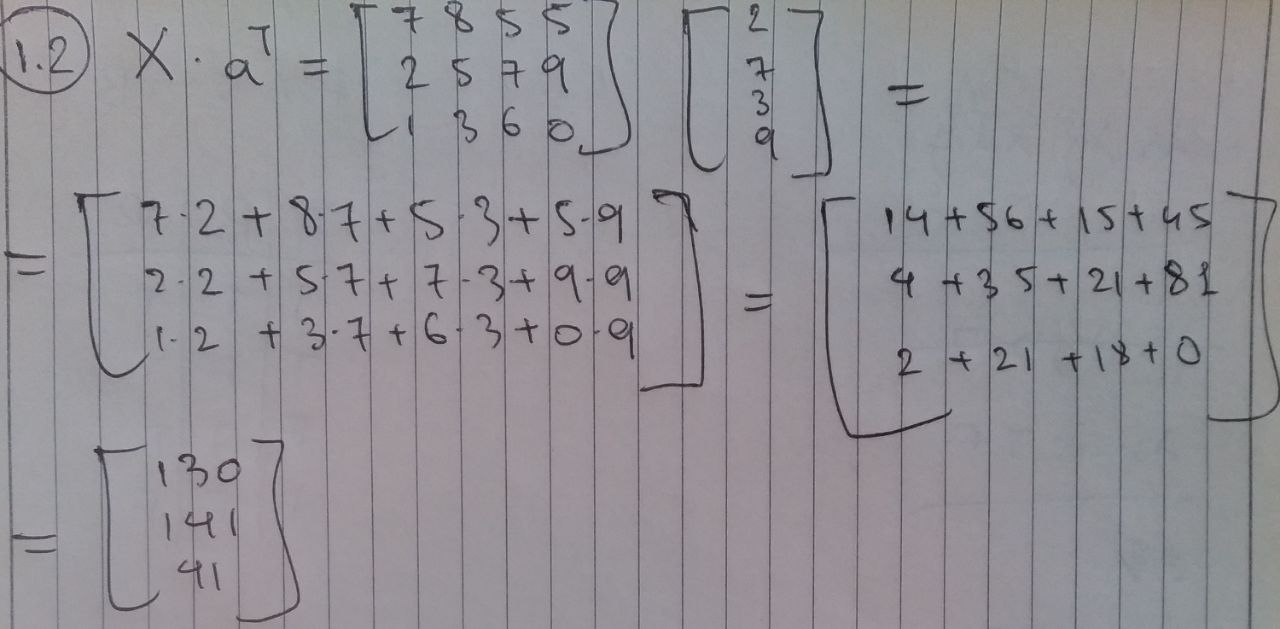 1.2 X · a^T = [7 8 5 5; 2 5 7 9; 1 3 6 0] [2; 7; 3; 9] =
= [7·2 + 8·7 + 5·3 + 5·9; 2·2 + 5·7 + 7·3 + 9·9; 1·2 + 3·7 + 6·3 + 0·9] = [14 + 56 + 15 + 45; 4 + 35 + 21 + 81; 2 + 21 + 18 + 0]
= [130; 141; 41]